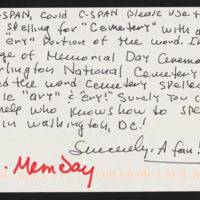 -SPAN, Could C-SPAN please use t
spelling for "Cemetery" with a
"ery" portion of the word. In
ge of Memorial Day Ceremon
rlington National Cemetery
ed the word Cemetery spelled
le "ary" & "ery"! Surely you c
help who knows how to spe
in Washington, DC!
Sincerely, A fan!
. Mem Day